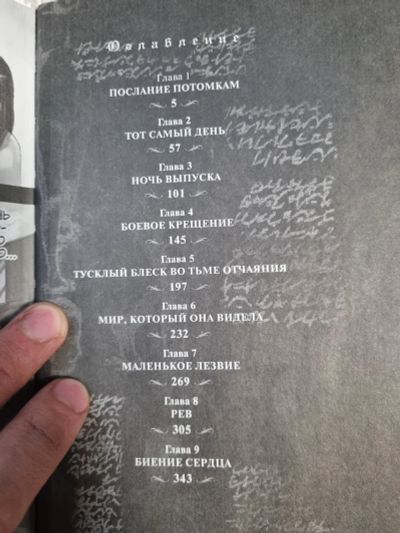 Оглавление
Глава 1
ПОСЛАНИЕ ПОТОМКАМ
5
Глава 2
ТОТ САМЫЙ ДЕНЬ
57
Глава 3
НОЧЬ ВЫПУСКА
101
Глава 4
БОЕВОЕ КРЕЩЕНИЕ
145
Глава 5
ТУСКЛЫЙ БЛЕСК ВО ТЬМЕ ОТЧАЯНИЯ
197
Глава 6
МИР, КОТОРЫЙ ОНА ВИДЕЛА
232
Глава 7
МАЛЕНЬКОЕ ЛЕЗВИЕ
269
Глава 8
РЕВ
305
Глава 9
БИЕНИЕ СЕРДЦА
343